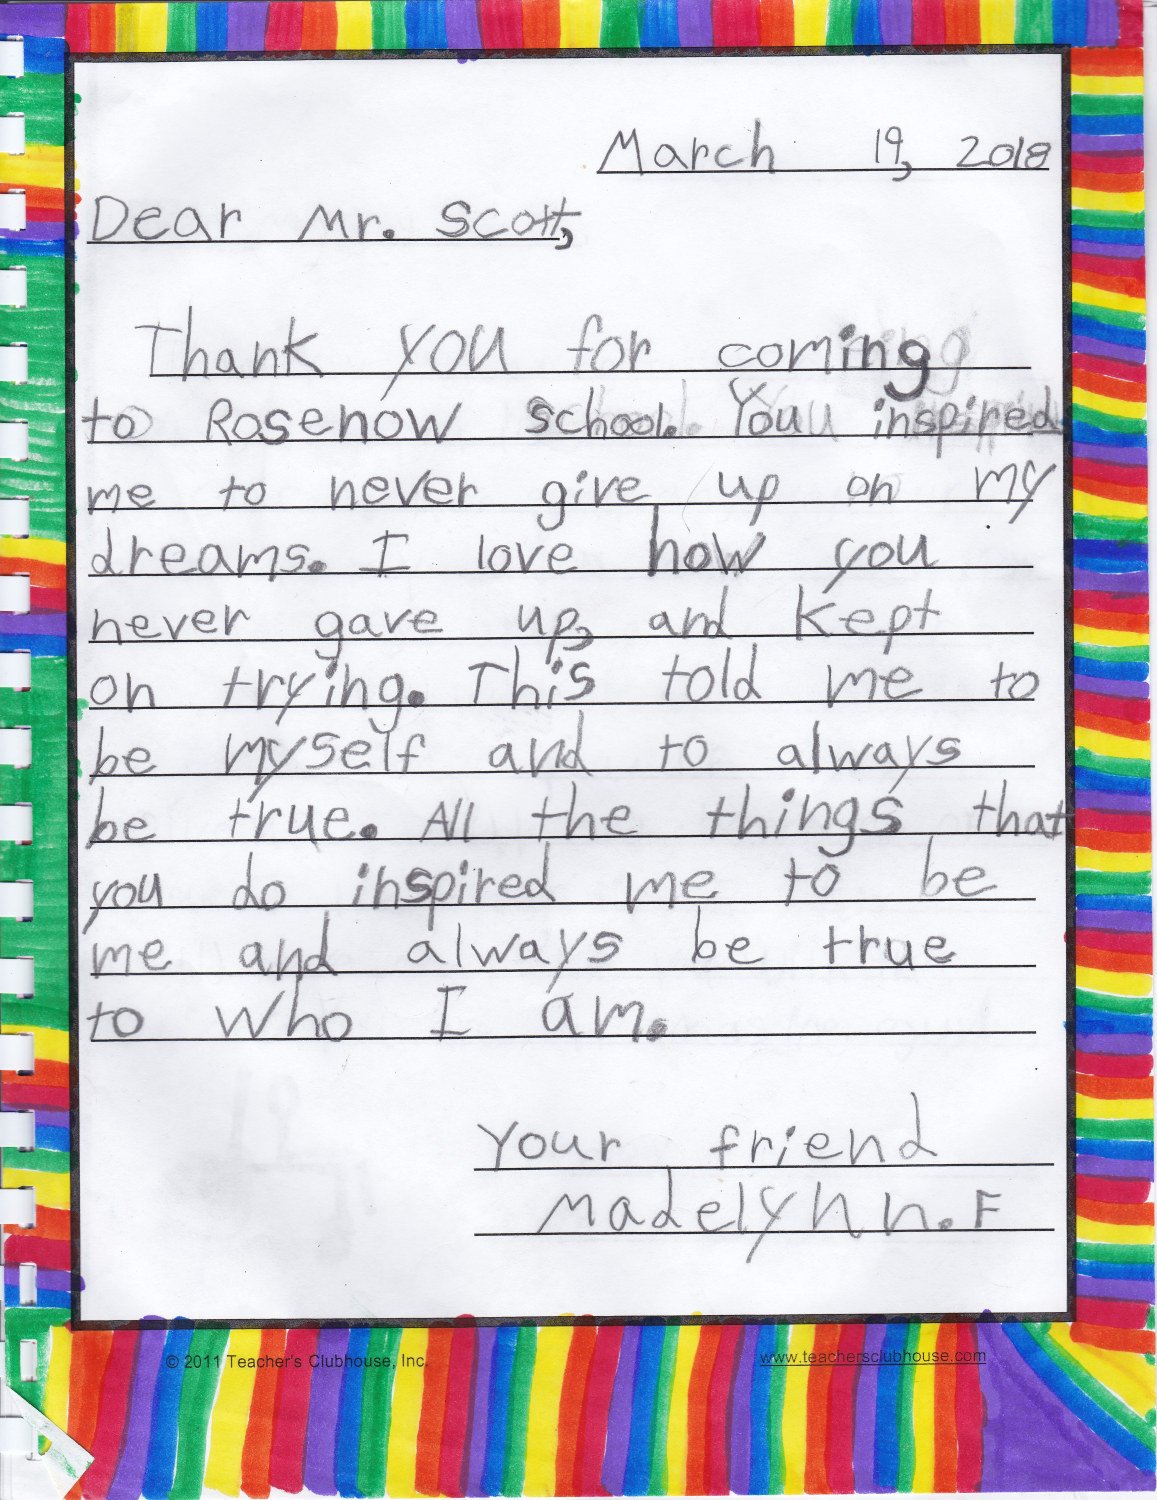 March 19, 2018
Dear Mr. Scott,
Thank you for coming
to Rosenow school. You inspired
me to never give up on my
dreams. I love how you
never gave up, and kept
on trying. This told me to
be myself and to always
be true. All the things that
you do inspired me to be
me and always be true
to who I am.
Your friend
Madelynn. F
© 2011 Teacher's Clubhouse, Inc. www.teachersclubhouse.com